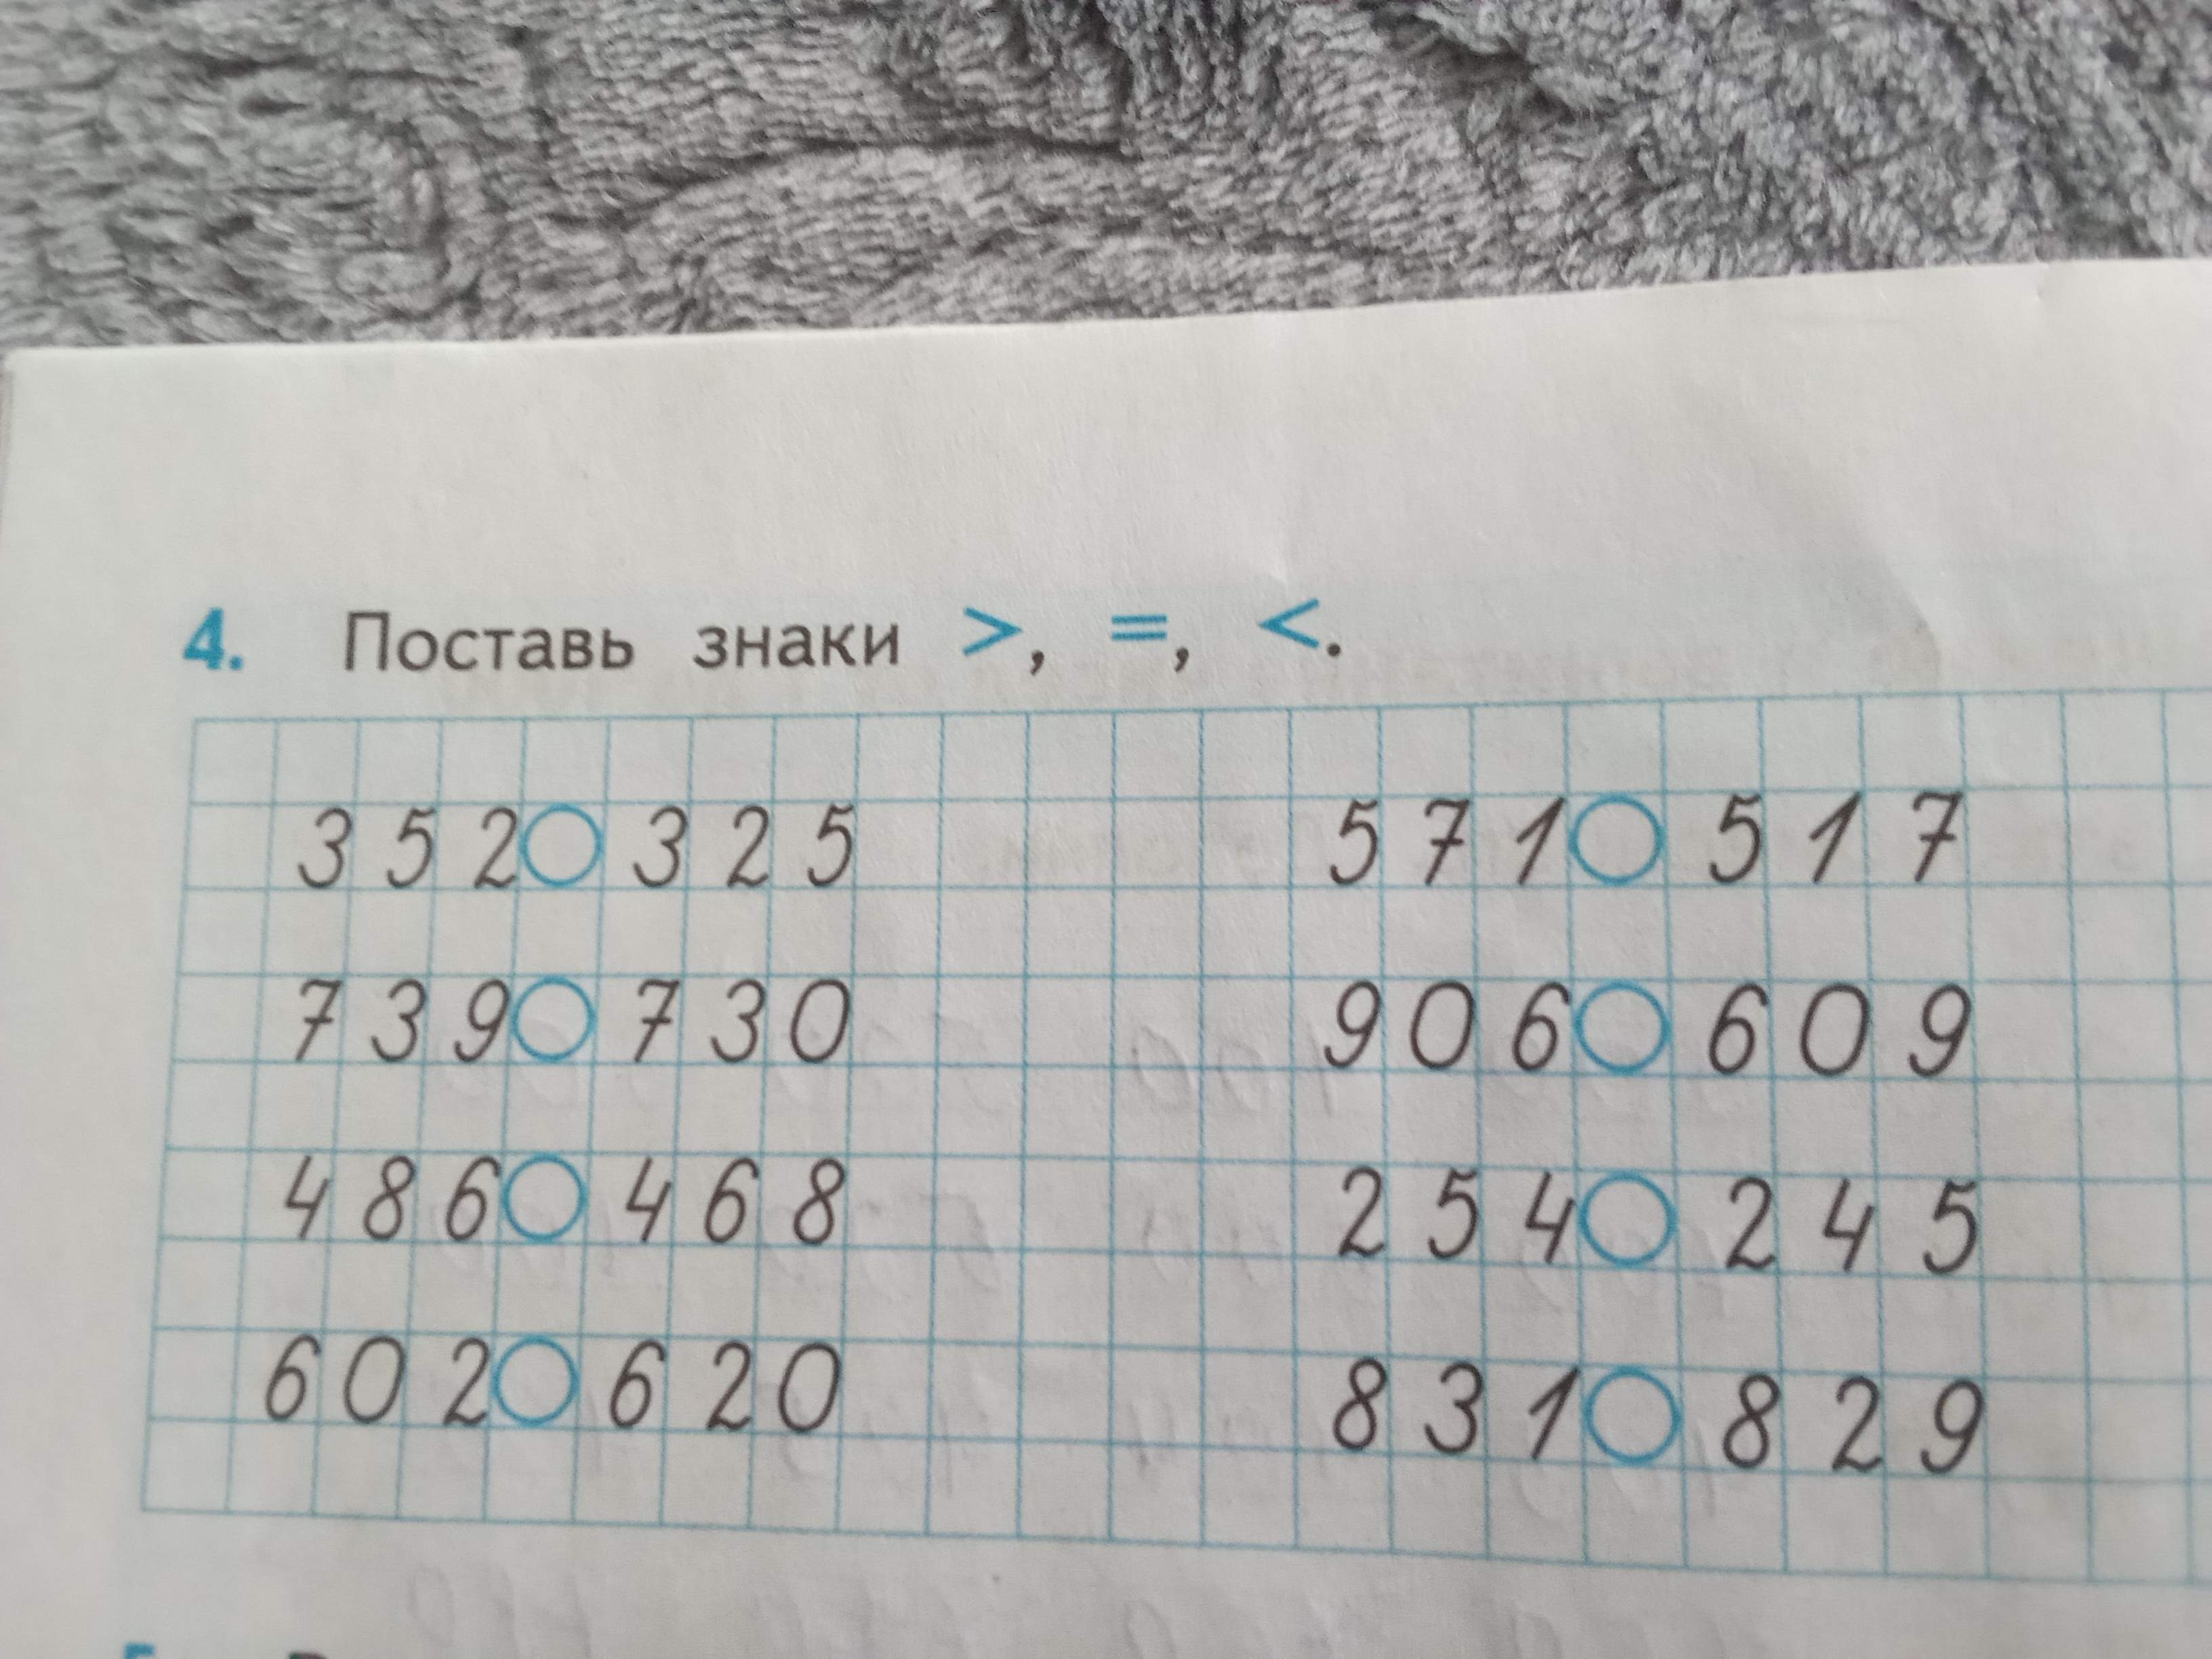 4. Поставь знаки >, =, <.
352○325 571○517
739○730 906○609
486○468 254○245
602○620 831○829